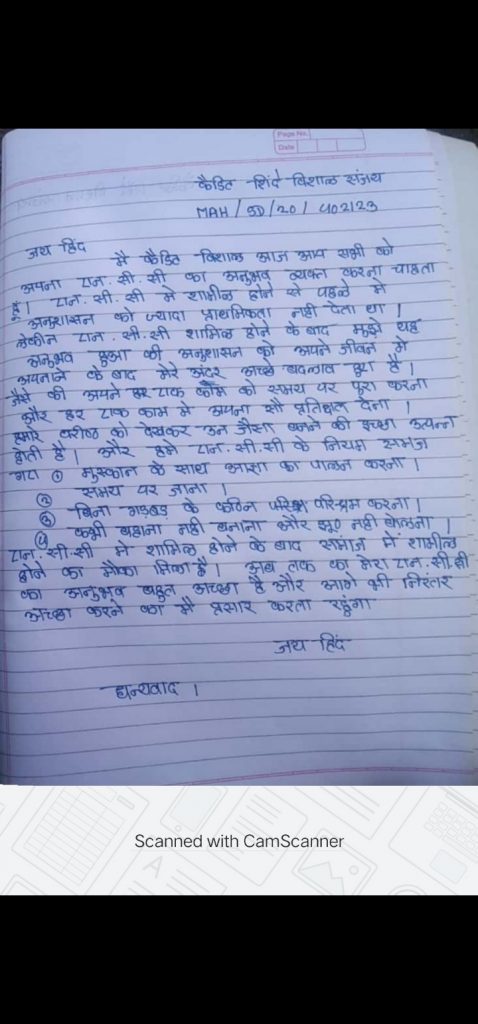 Page No.
Date
कैडिट शिंदे विशाल संजय
MAH/SD/20/402123
जय हिंद
मै कैडिट विशाल आज आप सभी को
अपना एन.सी.सी का अनुभव व्यक्त करना चाहता
हूं। एन.सी.सी मे शामील होने से पहले मे
अनुशासन को ज्यादा प्राथमिकता नही देता था।
लेकीन एन.सी.सी शामिल होने के बाद मुझे यह
अनुभव हुआ की अनुशासन को अपने जीवन मे
अपनाने के बाद मेरे अंदर अच्छे बदलाव हुए है।
जैसे की अपने हर एक काम को समय पर पुरा करना
और हर एक काम मे अपना सौ प्रतिशत देना।
हमारे वरीष्ठ को देखकर उन जैसा बनने की इच्छा उत्पन्न
होती है। और हमे एन.सी.सी के नियम समज
① मुस्कान के साथ आज्ञा का पालन करना।
② समय पर जाना।
③ बिना गडबड के कठिन परिश्रम करना।
4 कभी बहाना नही बनाना और झूठ नही बोलना।
एन.सी.सी मे शामिल होने के बाद समाज मे शामील
होने का मौका मिला है। अब तक का मेरा एन.सी.सी
का अनुभव बहुत अच्छा है और आगे भी निरंतर
अच्छा करने का मै प्रसार करता रहुंगा
जय हिंद
धन्यवाद।
Scanned with CamScanner